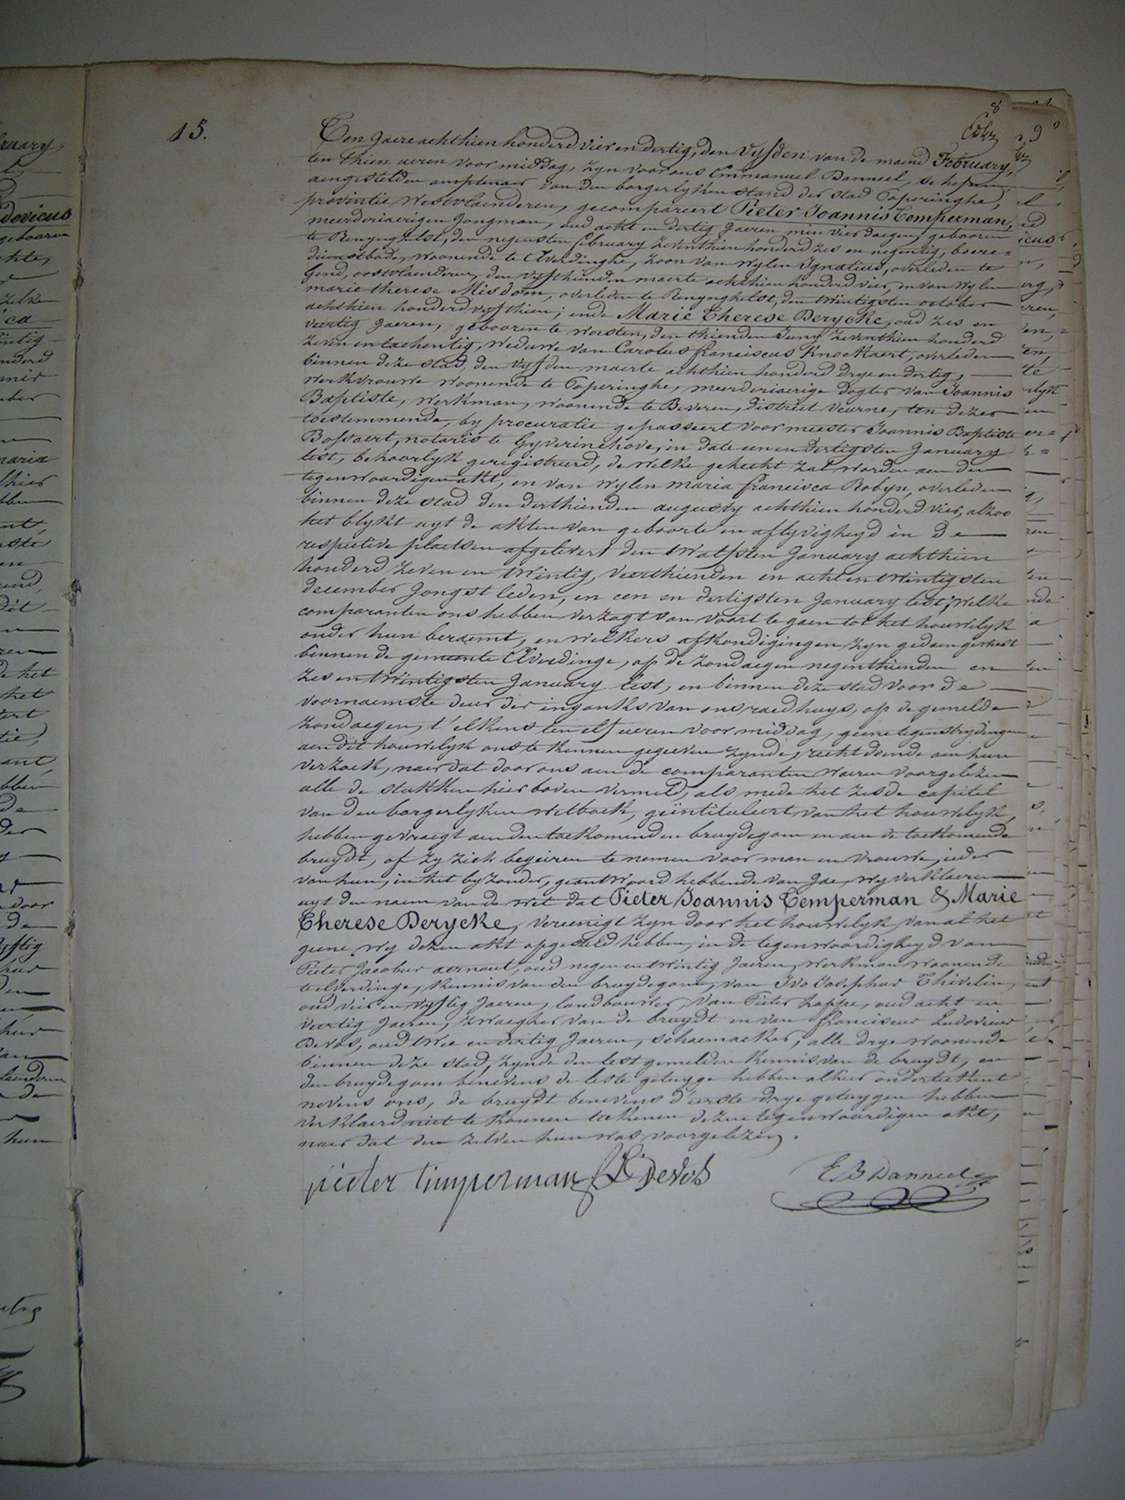 8
15.
Ten jaere achthien honderd vier en dertig, den vyfden van de maend February,
ten thien ueren voor middag, zyn voor ons Emmanuel Danneel, schepen
aengestelden amptenaer van den borgerlyken stand der stad Poperinghe,
provintie Westvlaenderen, gecompareert Pieter Joannis Temperman,
meerderjaerigen jongman, oud acht en dertig jaeren min vier daegen, gebooren
te Renynghelst, den negensten february zeventhien honderd zes en negentig, boere=
dienstbode, woonende te Elverdinghe, zoon van wylen Ignatius, overleden te
Gend, oostvlaenderen, den vyfthienden maerte achthien honderd vier, en van wylen
marie therese Misdom, overleden te Renynghelst, den twintigsten october
achthien honderd vyfthien; ende Marie Therese Derycke, oud zes en
veertig jaeren, gebooren te woesten, den thienden Juny zeventhien honderd
zeven en tachentig, weduwe van Carolus franciscus Knockaert, overleden
binnen deze stad, den vyfden maerte achthien honderd drye en dertig,
werkvrouwe woonende te Poperinghe, meerderjaerige dogter van Joannis
Baptiste, werkman, woonende te Beveren, district veurne, ten dezen
toestemmende, by procuratie gepasseert voor meester Joannis Baptiste
Bossaert, notaris te Gyverinchove, in date een en dertigsten January
lest, behoorlyk geregistreerd, de welke gehecht zal worden aen den
tegenwoordigen akt, en van wylen maria francisca Robyn, overleden
binnen deze stad den derthienden augusty achthien honderd vier, alzoo
het blykt uyt de akten van geboorte en aflyvigheyd in de
respective plaetsen afgelevert den twalfsten January achthien
honderd zeven en twintig, veerthienden en acht en twintigsten
december jongst leden, en een en dertigsten January lest; welke
comparanten ons hebben verzogt van voort te gaen tot het houwelyk
onder hun beraemt, en welkers afkondigingen zyn gedaen geweest
binnen de gemeente Elverdinge, op de zondaegen negenthienden en
zes en twintigsten January lest, en binnen deze stad voor de
voornaemste deur der ingank van ons raedhuys, op de gemelde
zondaegen, t'elkens ten elf ueren voor middag, geene tegenstrydingen
aen dit houwelyk ons te kennen gegeeven zynde, recht doende aen hun
verzoek, naer dat door ons aen de comparanten waeren voorgelezen
alle de stukken hier boven vermeld, als mede het zesde capitel
van den borgerlyken wetboek, geïntituleert van het houwelyk,
hebben gevraegt aen den toekomenden bruydegom en aen de toekomende
bruydt, of zy zich begeiren te nemen voor man en vrouwe, ieder
van hun, in het byzonder, geantwoord hebbende van Jae, wy verklaeren
uyt den naem van de wet dat Pieter Joannis Temperman & Marie
Therese Derycke, vereenigt zyn door het houwelyk, van al het
geene wy dezen akt opgesteld hebben, in de tegenwoordigheyd van
Pieter Jacobus aernout, oud negen en twintig jaeren, werkman woonende
te elverdinge, kennis van den bruydegom, van Ivo Josephus Thivelin,
oud vier en vyftig jaeren, landbouwer, van Pieter Loppe, oud acht en
veertig jaeren, zwaegher van de bruydt en van franciscus Ludovicus
Devos, oud twee en dertig jaeren, schoenmaeker, alle drye woonende
binnen deze stad, zynde den lest gemelden kennis van de bruydt, en
den bruydegom benevens de leste getuyge hebben alhier onderteekent
nevens ons, de bruydt benevens d'eerste drye getuygen hebben
verklaerd niet te konnen teekenen dezen tegenwoordigen akt,
naer dat den zelven hun was voorgelezen.
pieter timperman Devos E B Danneel